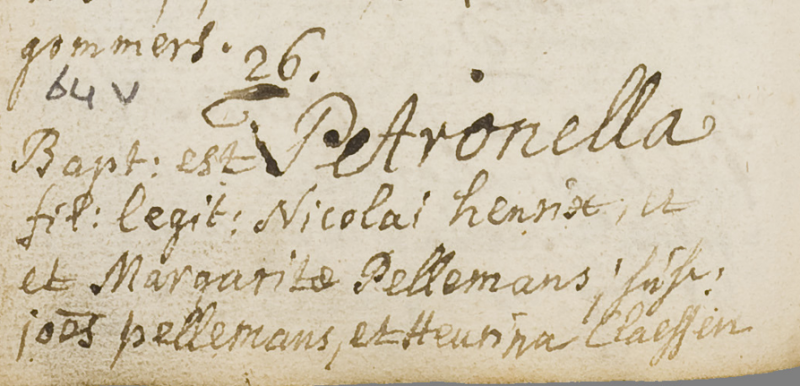 gommers.
26.
64 v
Bapt: est Petronella
fil: legit: Nicolai henrix, et
et Margaritæ Pellemans; susc:
joēs pellemans, et Henrina Claessen